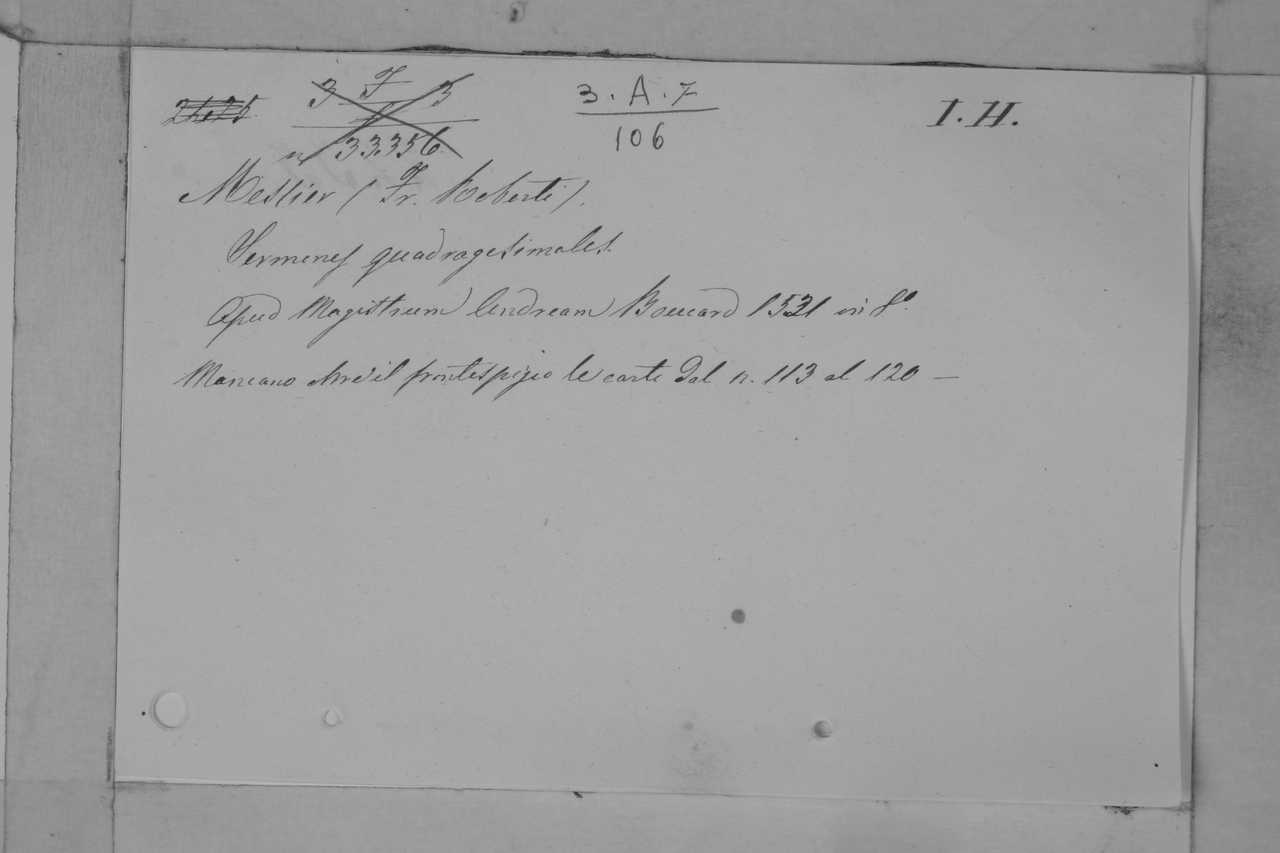 3 F 5
3.A.7
106
I.H.
n 33.356
Messier (Fr. Roberti).
Sermones quadragesimales.
Apud Magistrum Andream Boucard 1531 in 8°.
Mancano oltre il frontespizio le carte dal n. 113 al 120 —